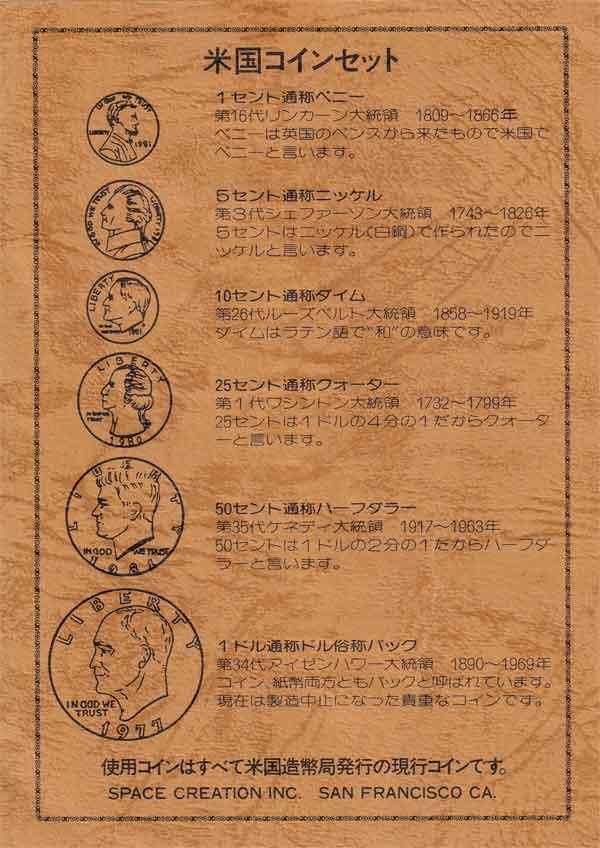 米国コインセット
IN GOD WE TRUST
LIBERTY
1981
1セント通称ペニー
第16代リンカーン大統領 1809～1866年
ペニーは英国のペンスから来たもので米国で
ペニーと言います。
IN GOD WE TRUST
LIBERTY
5セント通称ニッケル
第3代ジェファーソン大統領 1743～1826年
5セントはニッケル(白銅)で作られたのでニ
ッケルと言います。
LIBERTY
1981
10セント通称ダイム
第26代ルーズベルト大統領 1858～1919年
ダイムはラテン語で"和"の意味です。
LIBERTY
IN GOD WE
TRUST
1980
25セント通称クォーター
第1代ワシントン大統領 1732～1799年
25セントは1ドルの4分の1だからクォータ
ーと言います。
LIBERTY
IN GOD WE TRUST
1981
50セント通称ハーフダラー
第35代ケネディ大統領 1917～1963年
50セントは1ドルの2分の1だからハーフダ
ラーと言います。
LIBERTY
IN GOD WE
TRUST
1977
1ドル通称ドル俗称バック
第34代アイゼンハワー大統領 1890～1969年
コイン、紙幣両方ともバックと呼ばれています。
現在は製造中止になった貴重なコインです。
使用コインはすべて米国造幣局発行の現行コインです。
SPACE CREATION INC. SAN FRANCISCO CA.